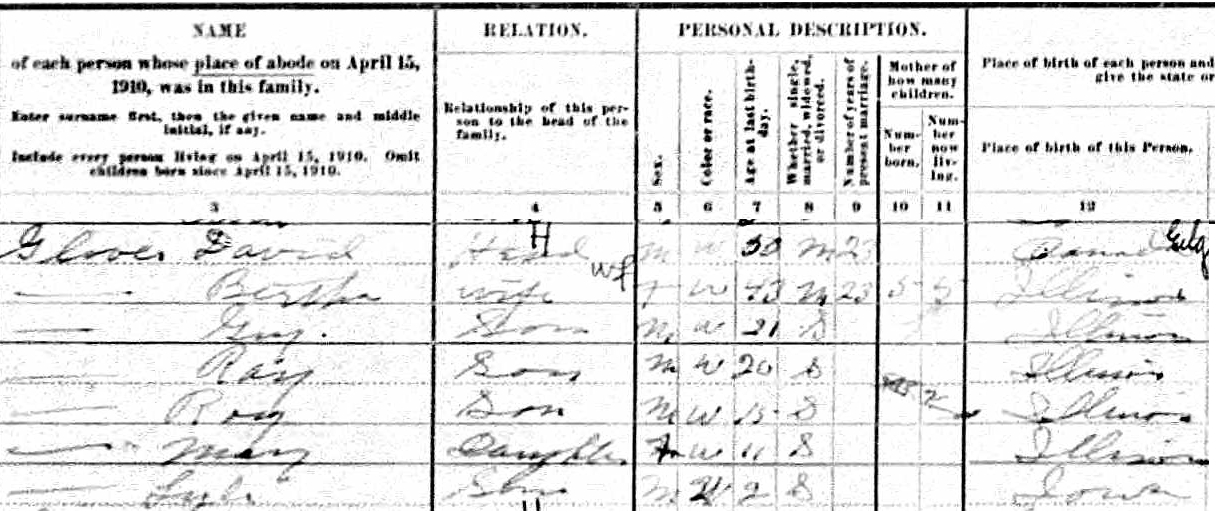 NAME
of each person whose place of abode on April 15,
1910, was in this family.
Enter surname first, then the given name and middle
initial, if any.
Include every person living on April 15, 1910. Omit
children born since April 15, 1910.
RELATION.
Relationship of this per-
son to the head of the
family.
PERSONAL DESCRIPTION.
Sex.
Color or race.
Age at last birth-
day.
Whether single,
married, widowed,
or divorced.
Number of years of
present marriage.
Mother of
how many
children.
Num-
ber
born.
Num-
ber
now
liv-
ing.
Place of birth of each person and
give the state or
Place of birth of this Person.
3 4 5 6 7 8 9 10 11 12
Glover David Head H M W 50 M 23 Eng
Bertha wife wf F W 43 M 23 5 5 Illinois
Guy. Son M W 21 S Illinois
Ray Son M W 20 S Illinois
Roy Son M W 15 S Illinois
Mary Daughter F W 11 S Illinois
Lyle Son M W 2 S Iowa
H